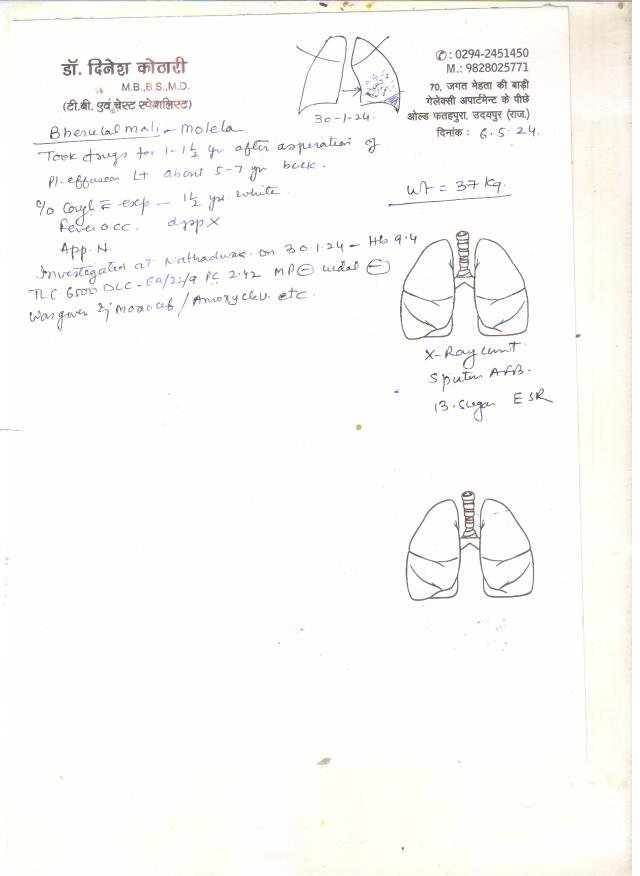 डॉ. दिनेश कोठारी
M.B.,B.S.,M.D.
(टी.बी. एवं चेस्ट स्पेशलिस्ट)
30-1-24.
✆ : 0294-2451450
M.: 9828025771
70, जगत मेहता की बाड़ी
गेलेक्सी अपार्टमेन्ट के पीछे
ओल्ड फतहपुरा, उदयपुर (राज.)
दिनांक : 6.5.24.
Bherulal mali - Molela
Took drugs for 1-1½ yr after asperation of
Pl. effusion Lt about 5-7 yr back.
wt = 37 kg.
c/o Cough c̄ exp - 1½ yr. white
Fever occ. dysp X
App. N.
Investigated at Nathadwara on 30.1.24 - Hb 9.4
TLC 6500 DLC - 69/22/9 PC 2.42 MP ⊖ widal ⊖
Was given Inj Monocef / Amoxyclav. etc.
X-Ray
Sputum AFB.
B. Sugar ESR